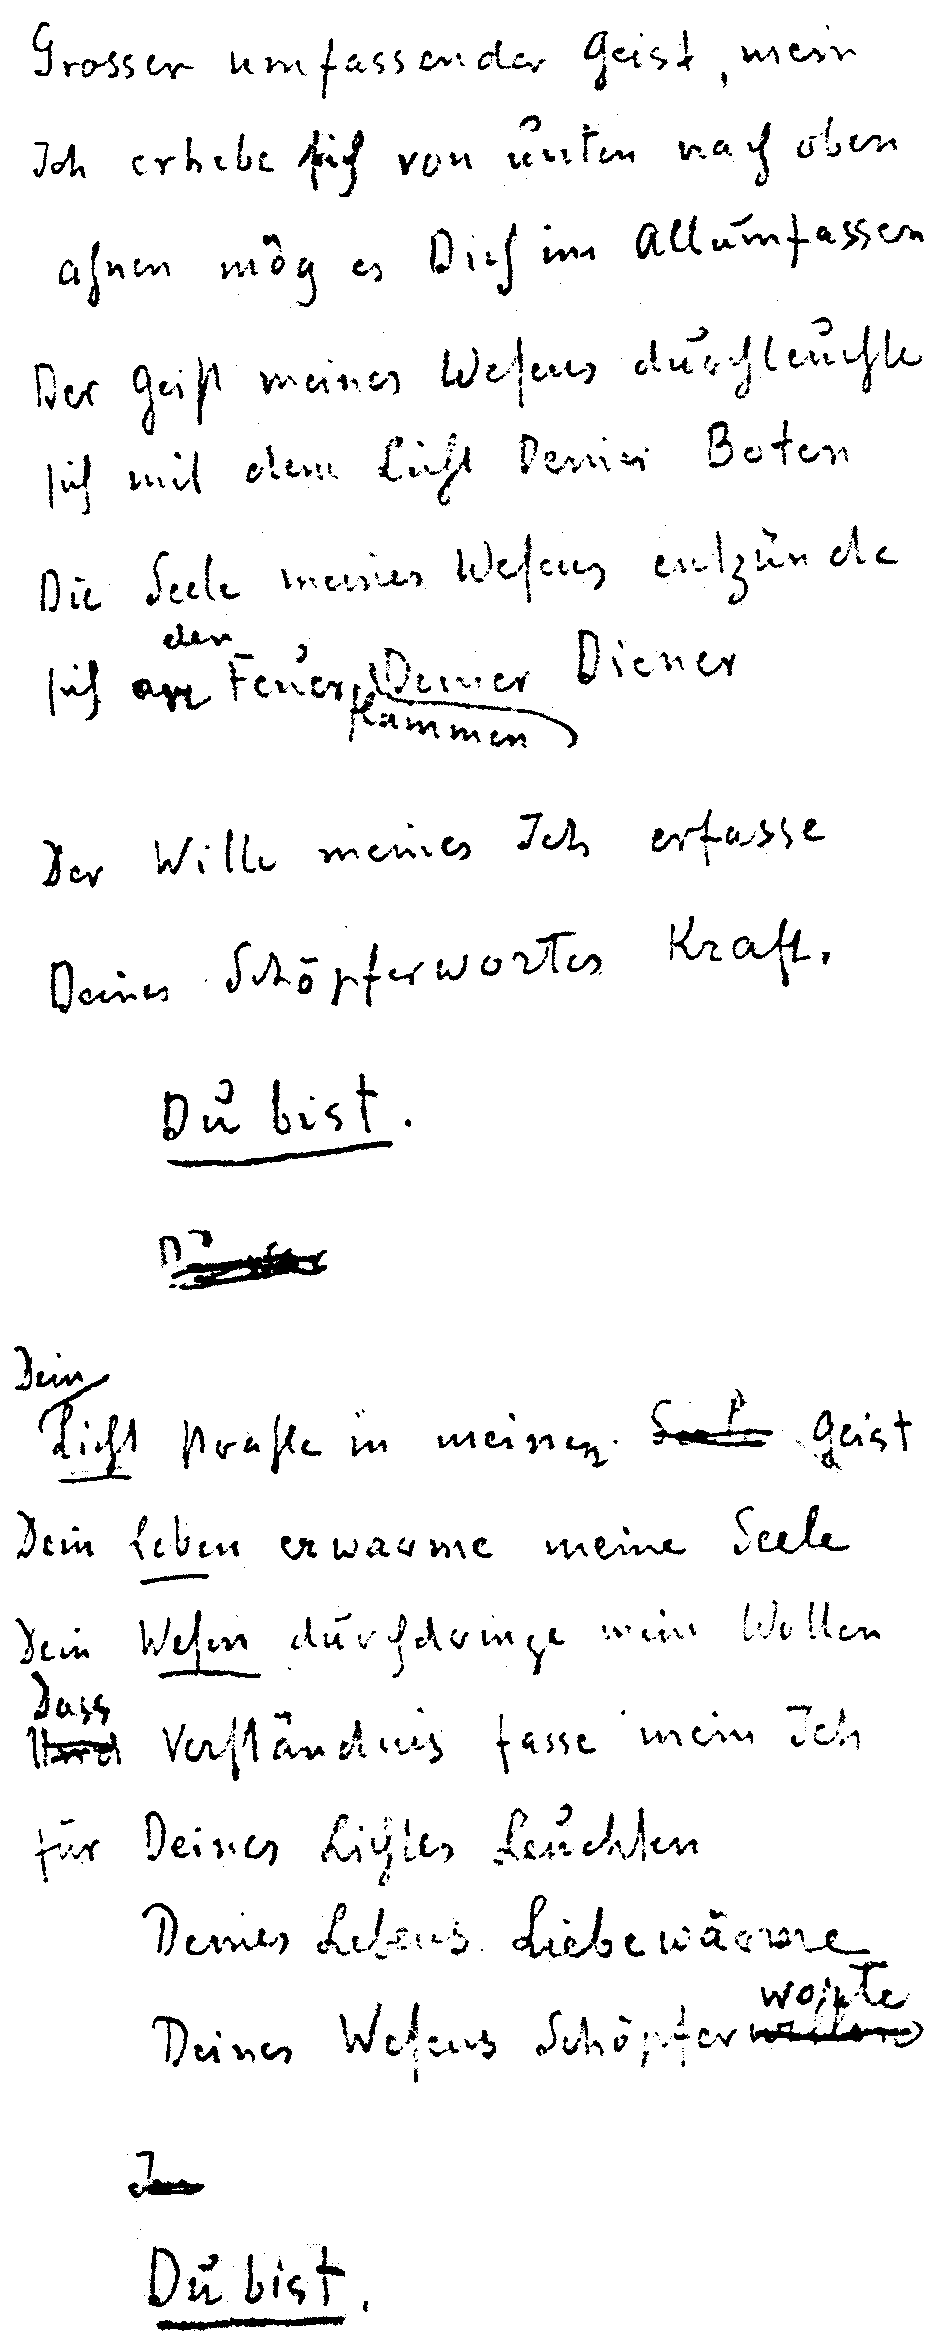 Grosser umfassender Geist, mein
Ich erhebe sich von unten nach oben
ahnen mög es Dich im Allumfassen
Der Geist meines Wesens durchleuchte
sich mit dem Licht Deiner Boten
Die Seele meines Wesens entzünde
den
sich an Feuerflammen Deiner Diener
Der Wille meines Ich erfasse
Deines Schöpferwortes Kraft.
Du bist.
Dein
Licht strahle in meinen Geist
Dein Leben erwarme meine Seele
Dein Wesen durchdringe mein Wollen
Dass
Und Verständnis fasse mein Ich
für Deines Lichtes Leuchten
Deines Lebens Liebewärme
worte
Deines Wesens Schöpfer
Du bist.